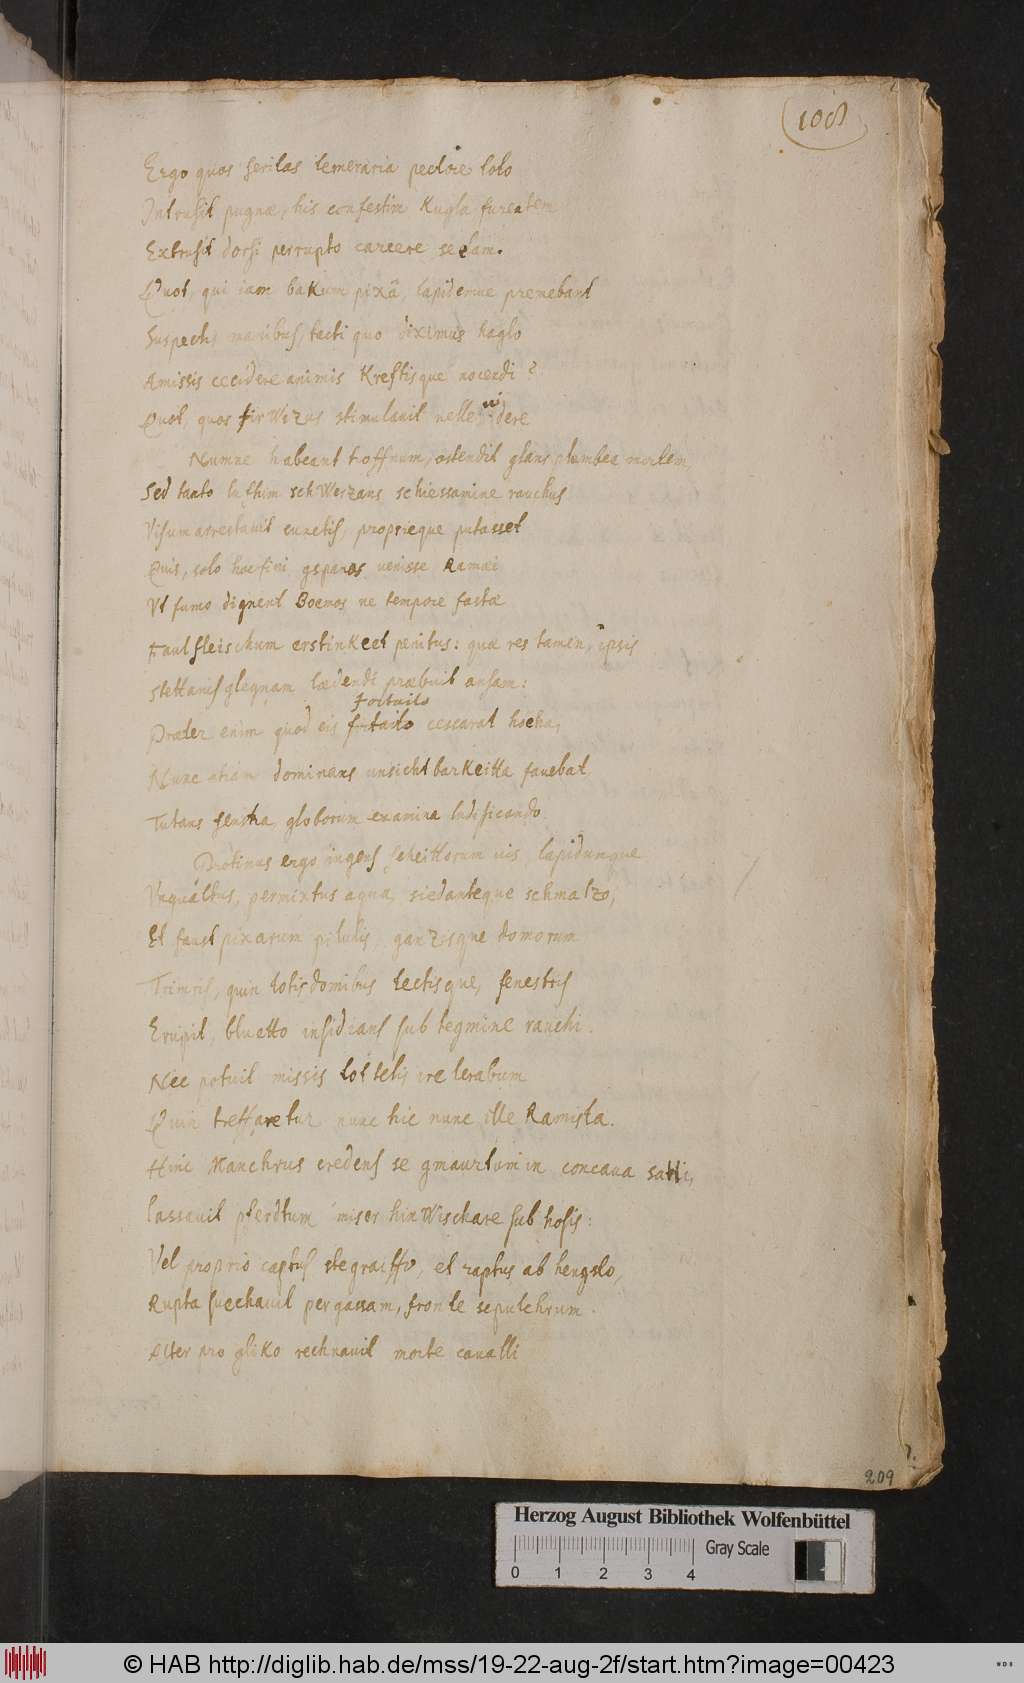 108
Ergo quos feritas temeraria pectore toto
Intrusit pugnæ, his confestim Kugla fureatem
Extrusit dorsi perrupto carcere seelam.
Quot, qui iam bakum pixâ, lapidemue premebant
Suspectis manibus, tecti quo diximus Raglo
Amissis cecidere animis Kreftisque nocendi?
Quot, quos firWizus stimulauit uelle uidere
Numne habeant troffnum, ostendit glans plumbea mortem,
Sed tanto luftim schWerzans schiessamine rauchus
Visum arrestauit cunctis, proprieque putasset
Quis, solo hoc fini gsparos uenisse Ramæi
Vt fumo dignent Boemos ne tempore fastæ
Faulfleischum erstinkeet penitus: quæ res tamen, ipsis
Stettanis glegnam lædendi præbuit ansam:
fortuilo
Præter enim quod eis fortuito cessarat hocha,
Nunc etiam dominans unsichtbarKeitta fauebat
Tutans fenstra, globorum examina ludificando.
Protinus ergo ingens scheittorum uis, lapidumque
Vnguáltus, permixtus aqua, siedanteque schmalzo,
Et faust pixarum pilulis, ganzisque domorum
Trimris, quin totis domibus tectisque, fenestris
Erupit, bluetto insidians sub tegmine rauchi.
Nec potuit missis tot telis ire lerabum
Quin treffaretur nunc hic nunc ille Ramista.
Hinc Manchrus credens se gmaurtum in concaua satli,
lassauit pferdtum miser hinWischare sub hosis:
Vel proprio captus stegraiffo, et raptus ab hengsto,
Rupta suechauit per gassam, fronte sepulchrum.
Alter pro gliko rechnauit morte caualli
209
Herzog August Bibliothek Wolfenbüttel
Gray Scale
0 1 2 3 4
© HAB http://diglib.hab.de/mss/19-22-aug-2f/start.htm?image=00423